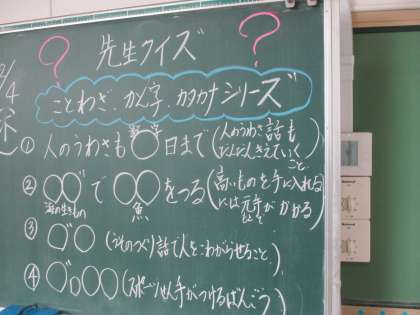 先生クイズ
ことわざ、かん字、カタカナシリーズ
① 人のうわさも○○日まで(人のうわさ話もだんだんきえていくこと
② ○○で○○をつる(高いものを手に入れるには元手がかかる
海の生きもの 魚
③ ○゛○(うそのつくり話で人をわからせること)
④ ○゛○○○(スポーツせん手がつけるばんごう)